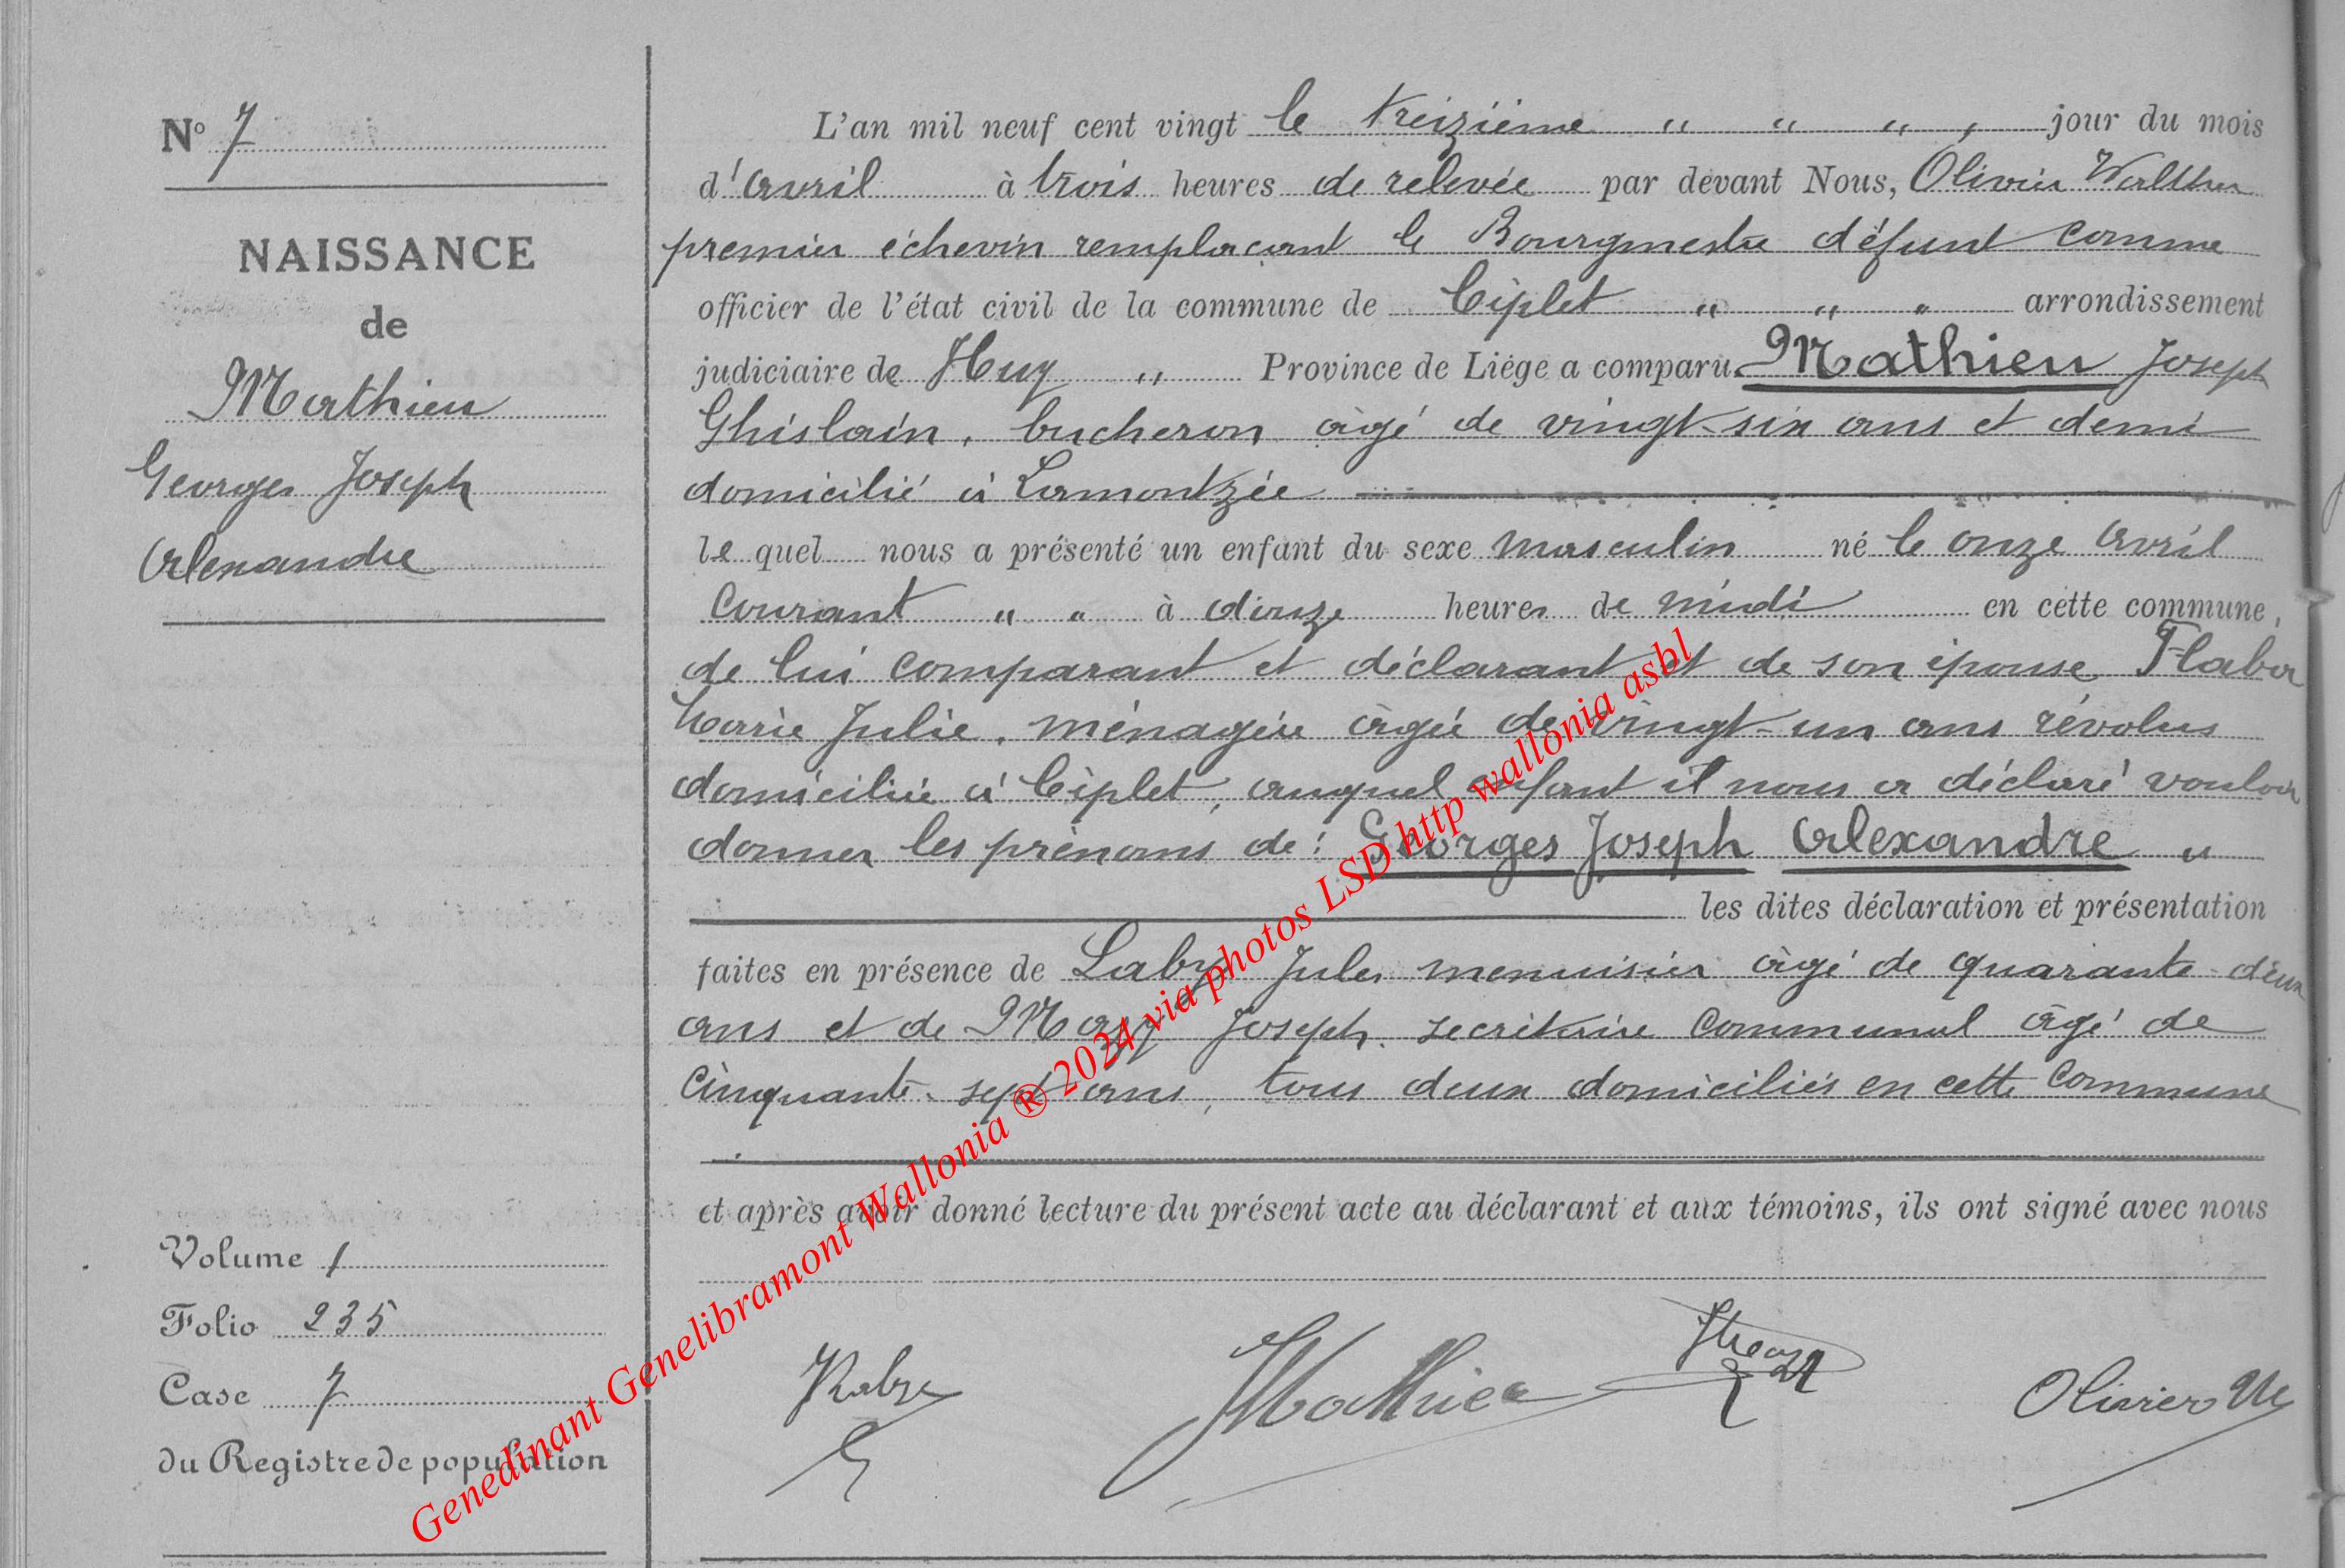 N° 7
NAISSANCE
de
Mathieu
Georges Joseph
Alexandre
Volume 1
Folio 235
Case 7
du Registre de population
L'an mil neuf cent vingt le treizième " " " , jour du mois
d'avril à trois heures de relevée par devant Nous, Olivier Walther
premier échevin remplacant le Bourgmestre défunt comme
officier de l'état civil de la commune de Ciplet " " " arrondissement
judiciaire de Huy " Province de Liége a comparu Mathieu Joseph
Ghislain, bucheron âgé de vingt-six ans et demi
domicilié à Lamontzée
le quel nous a présenté un enfant du sexe masculin né le onze avril
courant " " à douze heures de midi en cette commune,
de lui comparant et déclarant et de son épouse Flaba
Marie Julie, ménagère âgée de vingt-un ans révolus
domiciliée à Ciplet, auquel enfant il nous a déclaré vouloir
donner les prénoms de : Georges Joseph Alexandre "
les dites déclaration et présentation
faites en présence de Labye Jules menuisier âgé de quarante-deux
ans et de Joseph, secrétaire communal âgé de
cinquante-sept ans, tous deux domiciliés en cette commune
et après avoir donné lecture du présent acte au déclarant et aux témoins, ils ont signé avec nous
Mathieu
Olivier W
Genedinant Genelibramont Wallonia ® 2024 via photos LSD http wallonia asbl